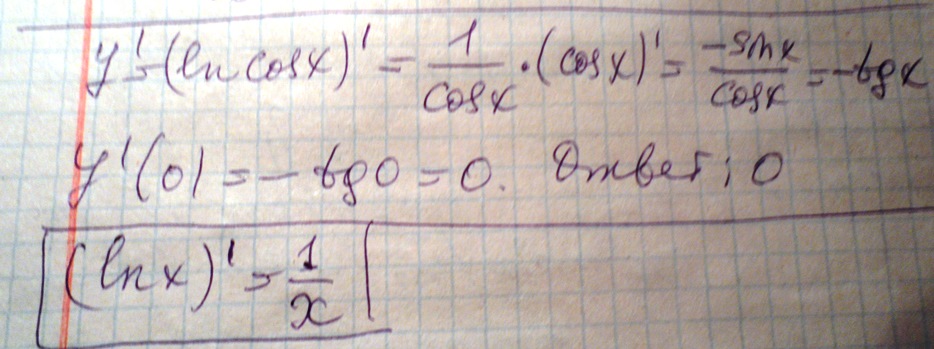 y' = (ln cos x)' = 1/cos x · (cos x)' = -sin x/cos x = -tg x
y'(0) = - tg 0 = 0. Ответ: 0
(ln x)' = 1/x